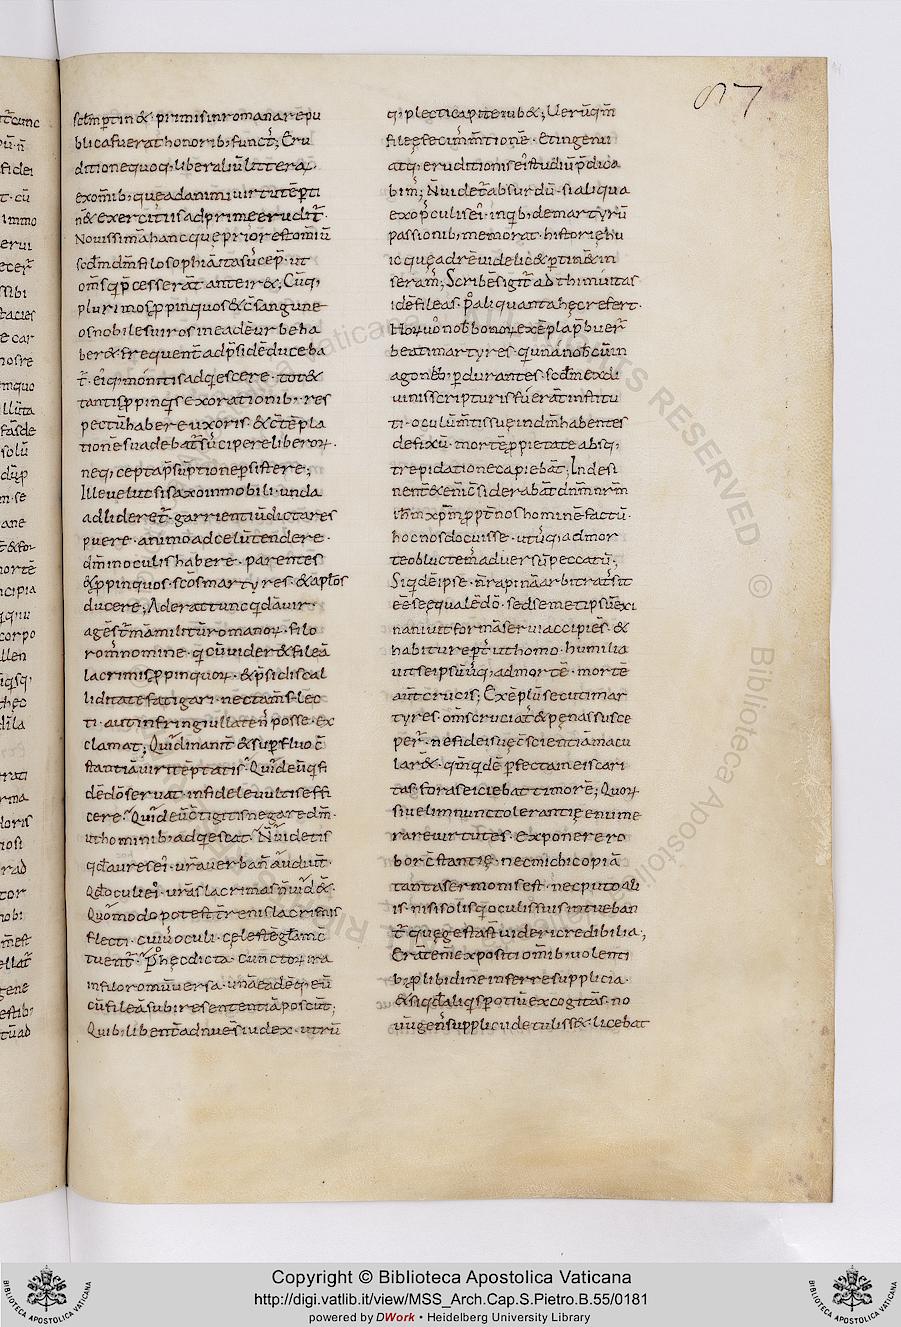 87
blica fuerat honorib; funct᷒; Eru
ditione quoq; liberaliū litterarꝫ·
exom̄ib; quę adanimi uirtutē ꝑti
n& exercitiis adprime erudit᷒·
Nouissima hanc quę prior est om̄iū
scd̄m dm̄ filosophiā ita suscep· ut
om̄s q̄ p̄cesserāt anteir&; Cūq;
plurimos ꝓpinquos & c̄sanguine
os nobiles uiros in eadē urbe ha
ber& frequent̄ ad p̄sidē duceba
t᷒· eiq; monitis adq̄escere· tot &
tantis ꝓpinq̄s exorationib; res
pectū habere uxoris· & c̄tēpla
tionē suadebat᷒ suscipere liberorꝫ·
neq; cepta p̄sūptione ꝑsistere;
Ille uelut si saxo inmobili· unda
adlideret᷒· garrientiū dicta res
puere· animo ad celū tendere·
dm̄ in oculis habere· parentes
& ꝓpinquos· scōs martyres· & aplōs
ducere; Aderat tunc q̄dā uir·
agēs t᷒mā militū romanorꝫ· filo
rom᷒ nomine· q̄ cū uider& fileā
lacrimis ꝓpinquorꝫ· & p̄sidis cal
liditate fatigari· nec tam̄ flec
ti· aut infringi ullaten᷒ posse· ex
clamat; Quid inanit̄ & suꝑfluo c̄
stantiā uiri tēptatis· Quid eū q̄ fi
dē dō seruat· infidele uultis effi
cere· Quid eū c̄tigitis negare dm̄·
ut hominib; adq̄escat· N̄ uidetis
qd̄ aures ei᷒· ur̄a uerba n̄ audiunt̄·
Qd̄ oculi ei᷒· ur̄as lacrimas n̄ uid&·
Quomodo potest t᷒renis lacrimis
flecti· cui᷒ oculi· cęlestē gl̄am c̄
tuent᷒· Post hęc dicta· cunctorꝫ ira
in filoromū uersa· unā eādēq; cū
cū filea subire sententiā poscunt̄;
Quib; libent̄ adnuēs iudex· utrū
q; plecti capite iub&; Uerū qm̄
fileę fecim᷒ m̄tionē· Et ingenii
atq; eruditionis ei᷒ studiū p̄dica
bim᷒; N̄ uidet᷒ absurdū· si aliqua
ex opusculis ei᷒· in q̄b; de martyrū
passionib; memorat· historię hu
ic quę ad rē uidelic& ꝑtin& in
seram᷒; Scribēs igit᷒ ad thimuitas
idē fileas· post aliquanta hęc refert·
Horꝫ uō nob̄ bonorꝫ exēpla p̄buer᷒
beati martyres· q̄ una nob̄cū in
agonib; ꝑdurantes· scd̄m ex di
uinis scripturis fuerāt institu
ti· oculū m̄tis suę in dm̄ habentes
defixū· mortē ꝓ pietate absq;
trepidatione capiebāt· Indesi
nent̄ & enī c̄siderabāt dn̄m nr̄m
ih̄m xp̄m ꝓpt̄ nos hominē factū·
hoc nos docuisse· ut usq; ad mor
te obluctem᷒ aduersū peccatū;
Siq̄dē ipse· n̄ rapinā arbitrat᷒ sit
eē se ęqualē dō· sed semet ipsū exi
naniuit formā serui accipiēs· &
habitu reꝑt᷒ ut homo· humilia
uit se ipsū usq; ad mortē· mortē
aut̄ crucis; Exēplū secuti mar
tyres· om̄s cruciat᷒ & pęnas susce
per᷒· ne fidei suę c̄scientiā macu
lar&· qm̄q̄dē ꝑfecta in eis cari
tas· foras eiciebat timorē; Quorꝫ
si uelim nunc tolerantię enume
rare uirtutes· & exponere ro
bor c̄stantię· nec michi copiā
tanta sermonis est· nec puto ali
is· nisi solis q̄ oculis suis intueban
t᷒· quę gesta st̄ uideri credibilia;
Erāt enī expositi om̄ib; uolenti
b; ꝓ libidine inferre supplicia·
& siq̄d aliq̄s potiū excogitās· no
uū gen᷒ supplicii detuliss& licebat
Copyright © Biblioteca Apostolica Vaticana
http://digi.vatlib.it/view/MSS_Arch.Cap.S.Pietro.B.55/0181
powered by DWork • Heidelberg University Library